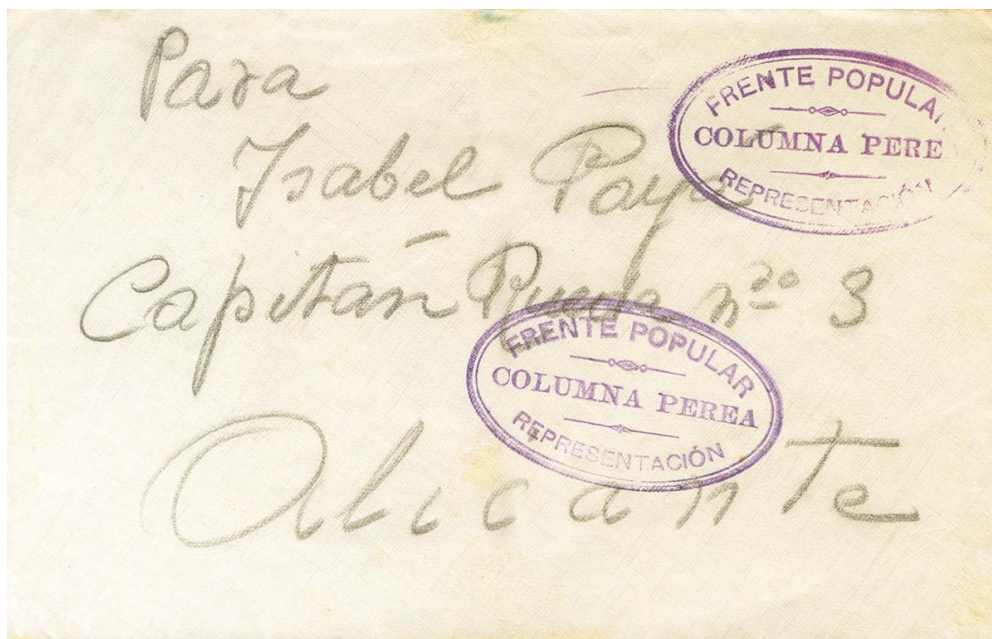 Para
Isabel Payá
Capitán Rueda nº 3
Alicante
FRENTE POPULAR
COLUMNA PERE
REPRESENTACIÓN
FRENTE POPULAR
COLUMNA PEREA
REPRESENTACIÓN